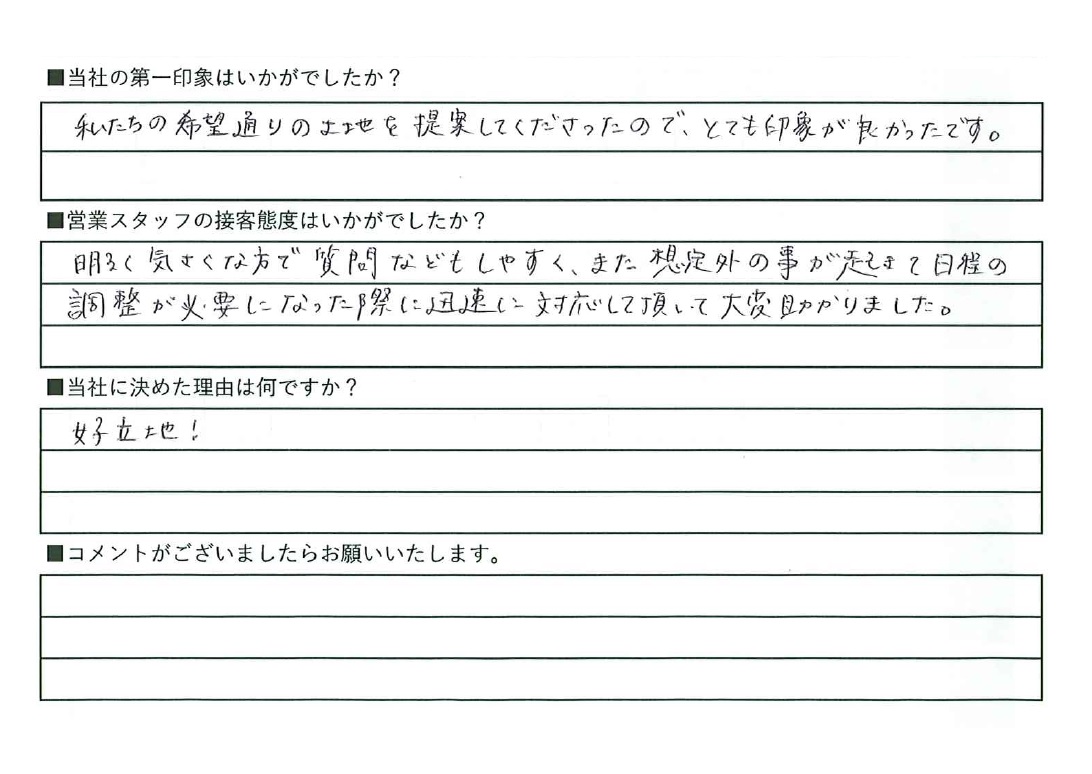 ■当社の第一印象はいかがでしたか？
私たちの希望通りの土地を提案してくださったので、とても印象が良かったです。
■営業スタッフの接客態度はいかがでしたか？
明るく気さくな方で質問などもしやすく、また想定外の事が起きて日程の
調整が必要になった際に迅速に対応して頂いて大変助かりました。
■当社に決めた理由は何ですか？
好立地！
■コメントがございましたらお願いいたします。